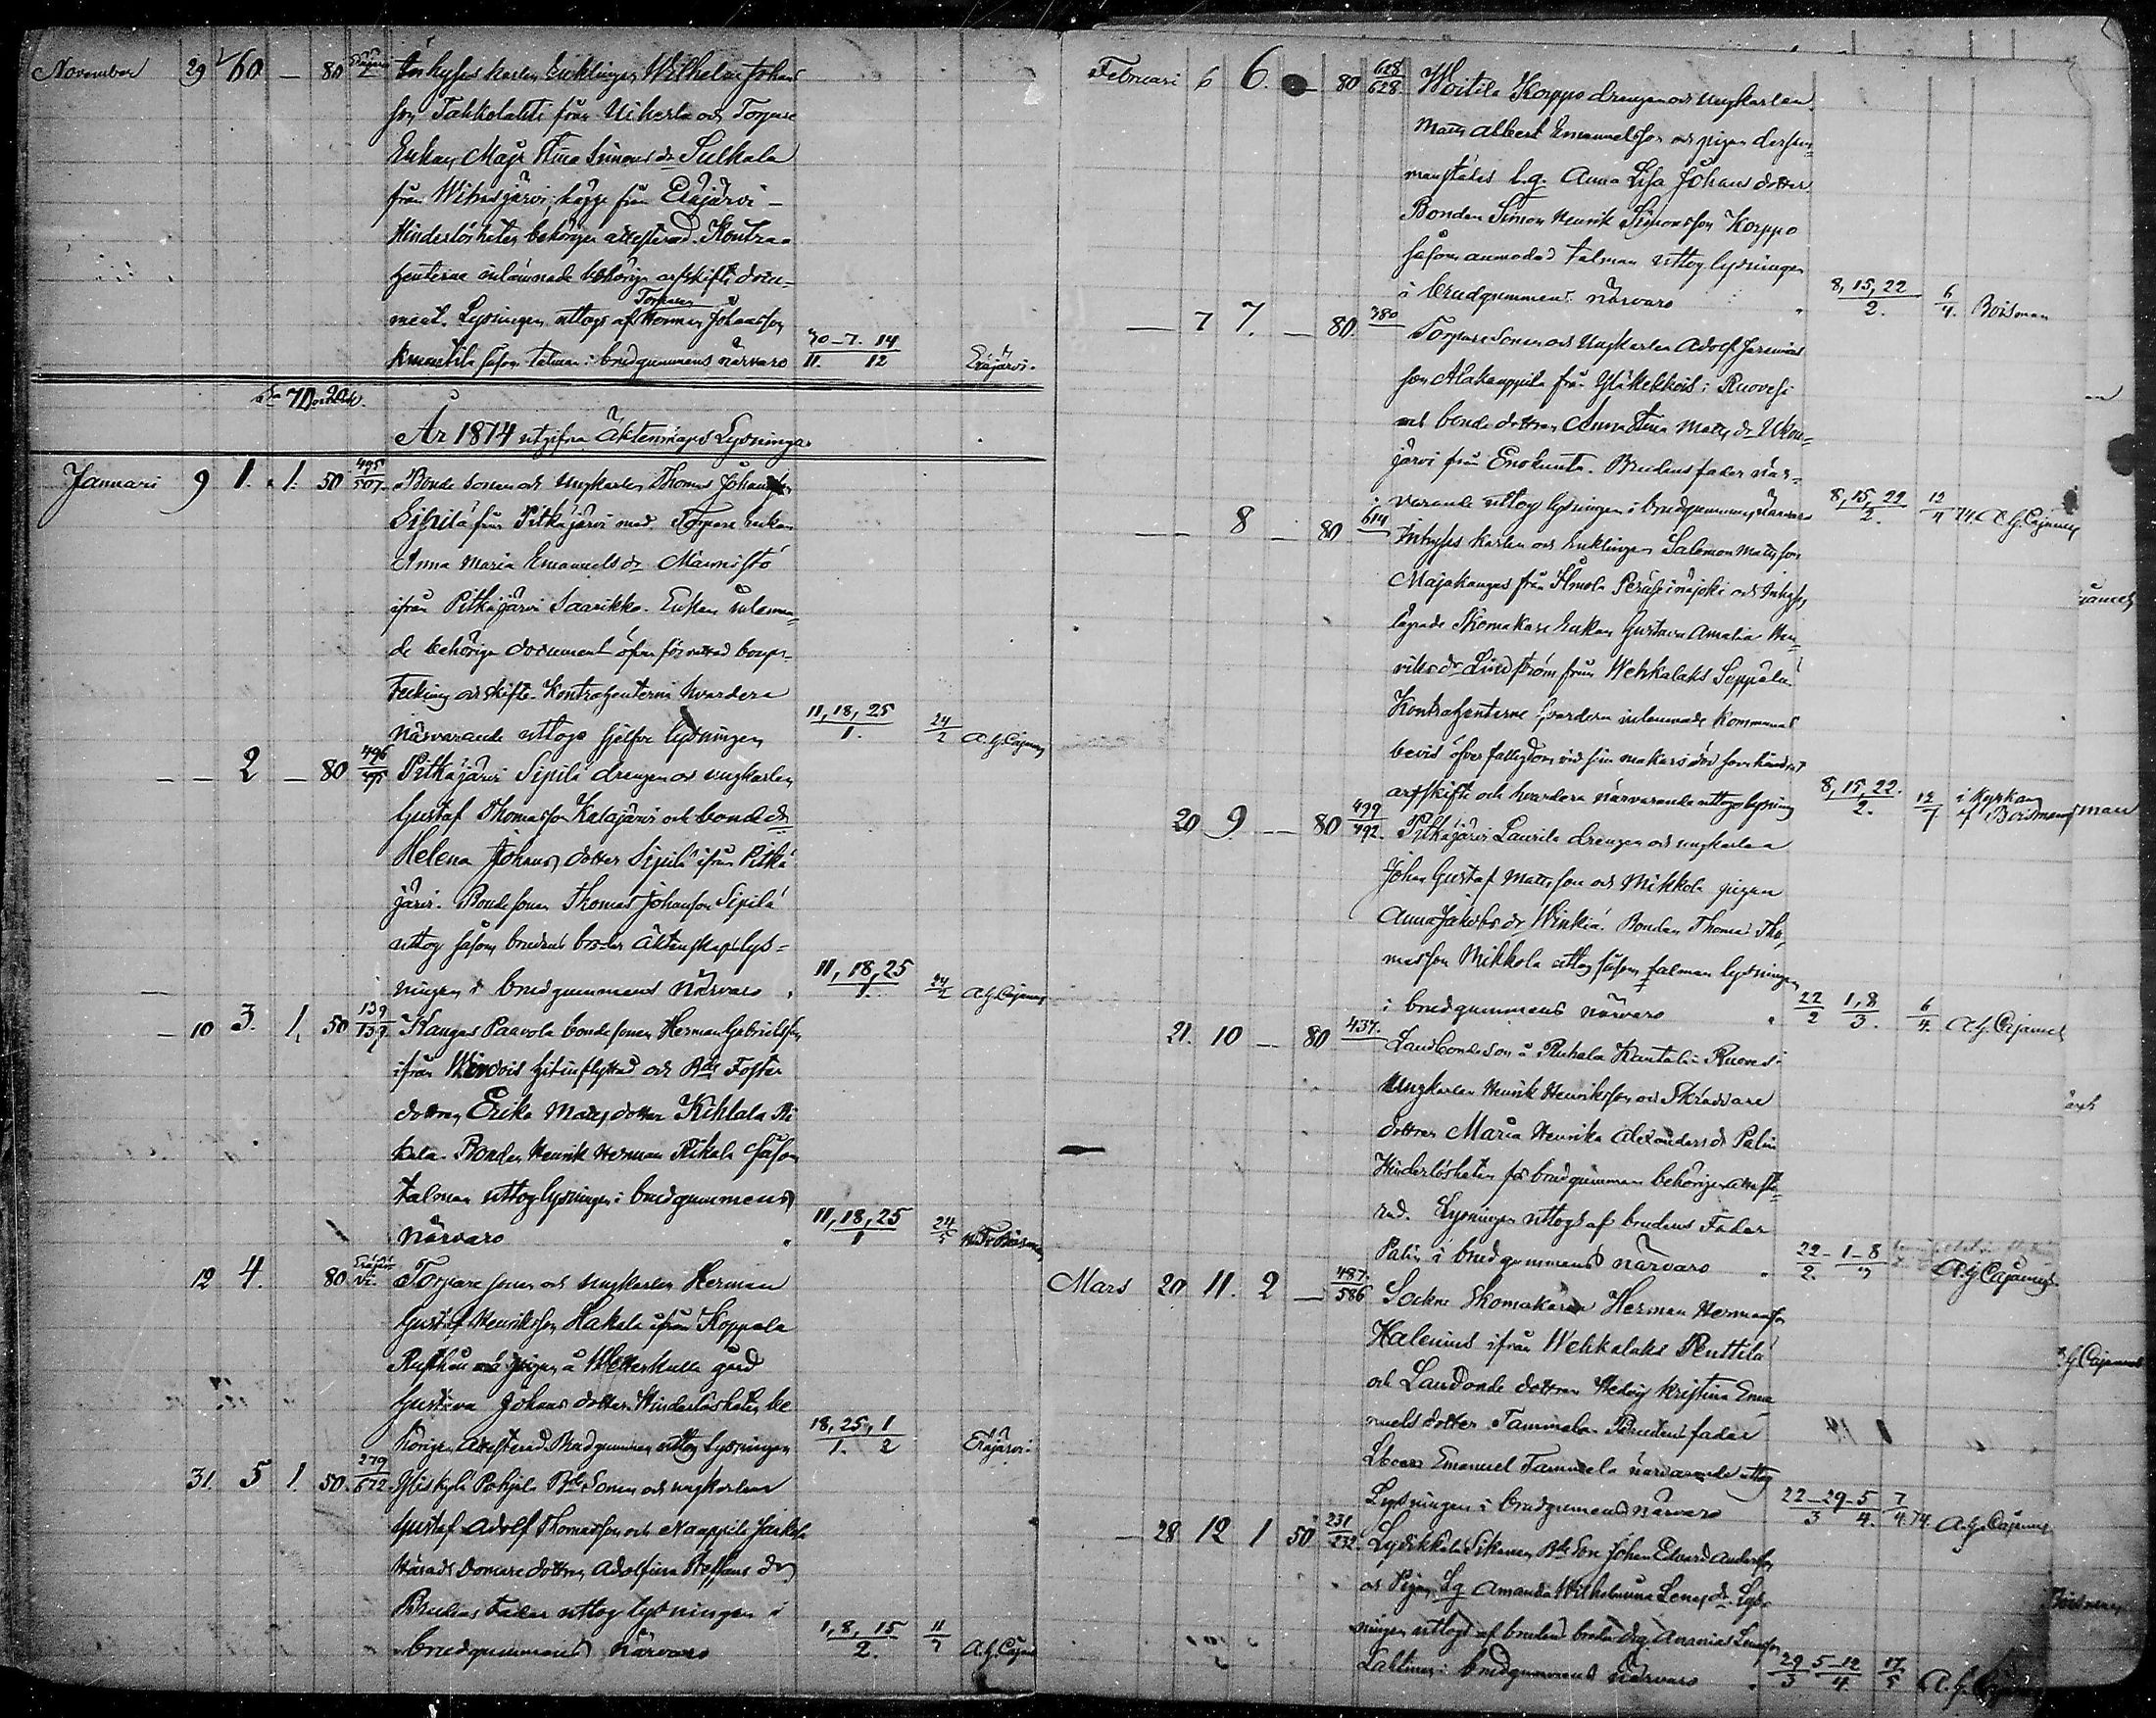 November 29 60 — 80 Inhyses karlen Enklingen Wilhelm Johans
son från Uiherla och Torpare
Enkan Maja Stina Simons dr Sulkala
från Wihasjärvi, begge från Eräjärvi –
Hinderlösheten behörigen attesterad. Kontra-
henterne inlämnade behörige arfskifts docu-
ment. Lysningen uttogs af Torparen Herman Johansson
såsom talman i brudgummens närvaro 30–7. 14 / 11. 12 Eräjärvi.
År 1874 utgifna Äktenskaps Lysningar
Januari 9 1. 1. 50 495/507. Bonde sonen och Ungkarlen Thomas Johansson
Sipilä från Pitkäjärvi med Torpare enkan
Anna Maria Emanuels dr Männistö
ifrån Pitkäjärvi Saarikko. Enkan inlemna-
de behörigen document öfver förrättad boupp-
teckning och skifte. Kontrahenterne hvardera
närvarande uttogo sjelfve lysningen 11, 18, 25 / 1. 24/2 A. G. Cajanus
— — 2 — 80 496/495 Pitkäjärvi Sipilä drengen och ungkarlen
Gustaf Thomasson Katajärvi och bonde dr
Helena Johans dotter Sipilä ifrån Pitkä
järvi. Bondesonen Thomas Johansson Sipilä
uttog såsom brudens broder äktenskapslys-
ningen i brudgummens närvaro. 11, 18, 25 / 1. 24/2 A. G. Cajanus
— 10 3. 1. 50 139/137 Kangas Paavola bondesonen Herman Gabrielsson
ifrån Wirdois hitinflyttad och Bde Foster
dottren Erika Matts dotter Kihlala Ri
kala. Bonden Henrik Herman Rikala såsom
talman uttog lysningen i brudgummens
närvaro 11, 18, 25 / 1 24/5
12 4. 80 Eräjärvi Torpare sonen och ungkarlen Herman
Gustaf Henriksson Hakala ifrån Koppala
och pigan å Wetterkulla gård
Gustava Johans dotter. Hinderlösheten be
hörigen attesterad. Brudgummen uttog Lysningen 18, 25, 1 / 1. 2 Eräjärvi.
31. 5 1. 50. 279/672 Yliskylä Pohjola Bde Sonen och ungkarlen
Gustaf Adolf Thomasson och Naappila Jaakola
Härads Domare dottren Adolfina Steffans dr
Brudens Fader uttog lysningen i
brudgummens närvaro 1, 8, 15 / 2. 11/7 A. G. Cajanus
Februari 6 6. — 80 628/628. Woitila Korppo drengen och ungkarlen
Matts Albert Emanuelsson och pigan dersam-
mastädes l.g. Anna Lisa Johans dotter
Bonden Simon Henrik Simonsson Korppo
såsom anmodad talman uttog lysningen
i brudgummens närvaro 8, 15, 22 / 2. 6/4. Boisman
— 7 7. — 80. 380 Torparesonen och Ungkarlen Adolf Jeremias
son Alakaappila från i Ruovesi
och bonde dottren Anna Stina Matts dr Ukon-
järvi från Enokunta. Brudens fader när-
varande uttog lysningen i brudgummens närvaro 8, 15, 22 / 2. 12/4 74. A. G. Cajanus
— — 8 — 80 614 Inhyses karlen och Enklingen Salomon Mattsson
Majakangas från Ilmola Peräseinäjoki och Inhyses
Skomakare Enkan Gustava Amalia Hen-
riks dr Lindström från Wehkalaks Seppälä.
Kontrahenterne hvardera inlemnade Kommunal
bevis öfver fattigdom vid sin makas död
arfskifte och hvardera närvarande uttogo lysning 8, 15, 22. / 2. i Kyrkan af Boisman
20 9 — 80 499/492. Pitkäjärvi Laurila drengen och ungkarlen
Johan Gustaf Mattsson och Mikkola pigan
Anna Jakobs dr Winkiä. Bonden Thomas Tho-
masson Mikkola uttog såsom talman lysningen
i brudgummens närvaro 22/2 1, 8/3. 6/4. A. G. Cajanus
21. 10 — 80 437. Landbondeson å Ruhala Kantala i Ruovesi
Ungkarlen Henrik Henriksson och Skräddare
dottren Maria Henrika Alexanders dr Palin
Hinderlösheten för brudgummen behörigen atteste-
rad. Lysningen uttogs af brudens Fader
Palin i brudgummens närvaro 22–1–8 / 2. 3 A. G. Cajanus.
Mars 20 11. 2 — 487./586 Sockne Skomakaren Herman Hermansson
Halenius ifrån Wehkalaks Penttilä
och Landbonde dottren Hedvig Kristina Ema-
nuels dotter Tammela. Brudens fader
Emanuel Tammela närvarande uttog
Lysningen i brudgummens närvaro 22–29–5 / 3 4. 7/4 74. A. G. Cajanus
— 28 12 1 50 231/232. Sikanen Bde Son Johan Edvard Andersson
och Pigan l.g. Amanda Wilhelmina dr. Lys-
ningen uttogs af brudens broder drg. Ananias
i brudgummens närvaro 29/3 5–12/4. 17/5 A. G. Cajanus